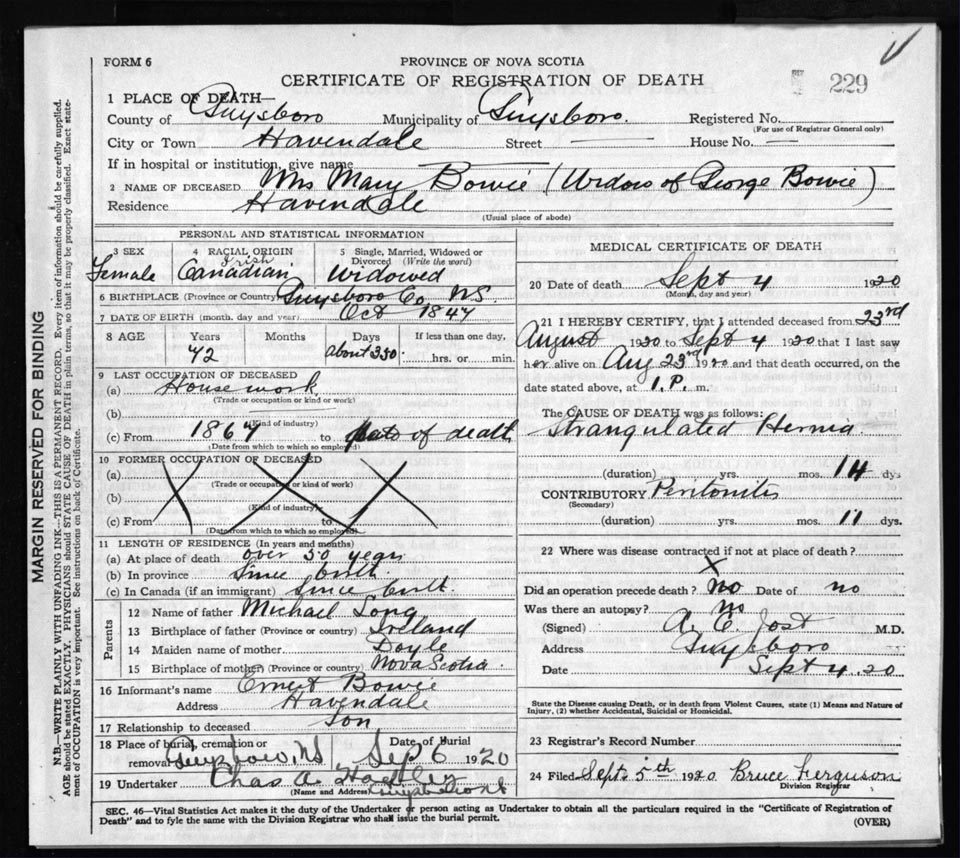 FORM 6
PROVINCE OF NOVA SCOTIA
CERTIFICATE OF REGISTRATION OF DEATH
229
1 PLACE OF DEATH—
County of Guysboro Municipality of Guysboro. Registered No.
(For use of Registrar General only)
City or Town Havendale Street — House No. —
If in hospital or institution, give name
2 NAME OF DECEASED Mrs Mary Bowie (Widow of George Bowie)
Residence Havendale
(Usual place of abode)
PERSONAL AND STATISTICAL INFORMATION
3 SEX 4 RACIAL ORIGIN 5 Single, Married, Widowed or Divorced (Write the word)
Irish
Female Canadian Widowed
6 BIRTHPLACE (Province or Country) Guysboro Co. NS.
7 DATE OF BIRTH (month, day and year) Oct 1847
8 AGE Years Months Days If less than one day,
72 about 330. hrs. or min.
9 LAST OCCUPATION OF DECEASED
(a) House work
(Trade or occupation or kind or work)
(b)
(Kind of industry)
(c) From 1867 to date of death
(Date from which to which so employed)
10 FORMER OCCUPATION OF DECEASED
(a)
(Trade or occupation or kind or work)
(b)
(Kind of industry)
(c) From to
(Date from which to which so employed)
11 LENGTH OF RESIDENCE (In years and months)
(a) At place of death over 50 years
(b) In province Since birth.
(c) In Canada (if an immigrant) Since birth.
Parents
12 Name of father Michael Long
13 Birthplace of father (Province or country) Ireland
14 Maiden name of mother Doyle
15 Birthplace of mother (Province or country) Nova Scotia
16 Informant's name Ernest Bowie
Address Havendale
17 Relationship to deceased Son
18 Place of burial, cremation or removal NS Date of Burial Sep 6 1920
19 Undertaker Chas A.
(Name and Address)
MEDICAL CERTIFICATE OF DEATH
20 Date of death Sept 4 1920
(Month, day and year)
21 I HEREBY CERTIFY, that I attended deceased from 23rd
August 1920 to Sept 4 1920 that I last saw
her alive on Aug 23rd 1920 and that death occurred, on the
date stated above, at 1.P. m.
The CAUSE OF DEATH was as follows:
Strangulated Hernia.
(duration) yrs. mos. 14 dys
CONTRIBUTORY Peritonitis
(Secondary)
(duration) yrs. mos. 11 dys.
22 Where was disease contracted if not at place of death?
X
Did an operation precede death? No Date of no
Was there an autopsy? No
(Signed) A. C. Jost M.D.
Address Guysboro
Date Sept 4. 20
State the Disease causing Death, or in death from Violent Causes, state (1) Means and Nature of
Injury, (2) whether Accidental, Suicidal or Homicidal.
23 Registrar's Record Number
24 Filed Sept. 5th 1920 Bruce Ferguson
Division Registrar
SEC. 46—Vital Statistics Act makes it the duty of the Undertaker or person acting as Undertaker to obtain all the particulars required in the "Certificate of Registration of
Death" and to fyle the same with the Division Registrar who shall issue the burial permit.
(OVER)
MARGIN RESERVED FOR BINDING
N.B.—WRITE PLAINLY WITH UNFADING INK—THIS IS A PERMANENT RECORD. Every item of information should be carefully supplied.
AGE should be stated EXACTLY. PHYSICIANS should STATE CAUSE OF DEATH in plain terms, so that it may be properly classified. Exact statement of OCCUPATION is very important. See instructions on back of Certificate.